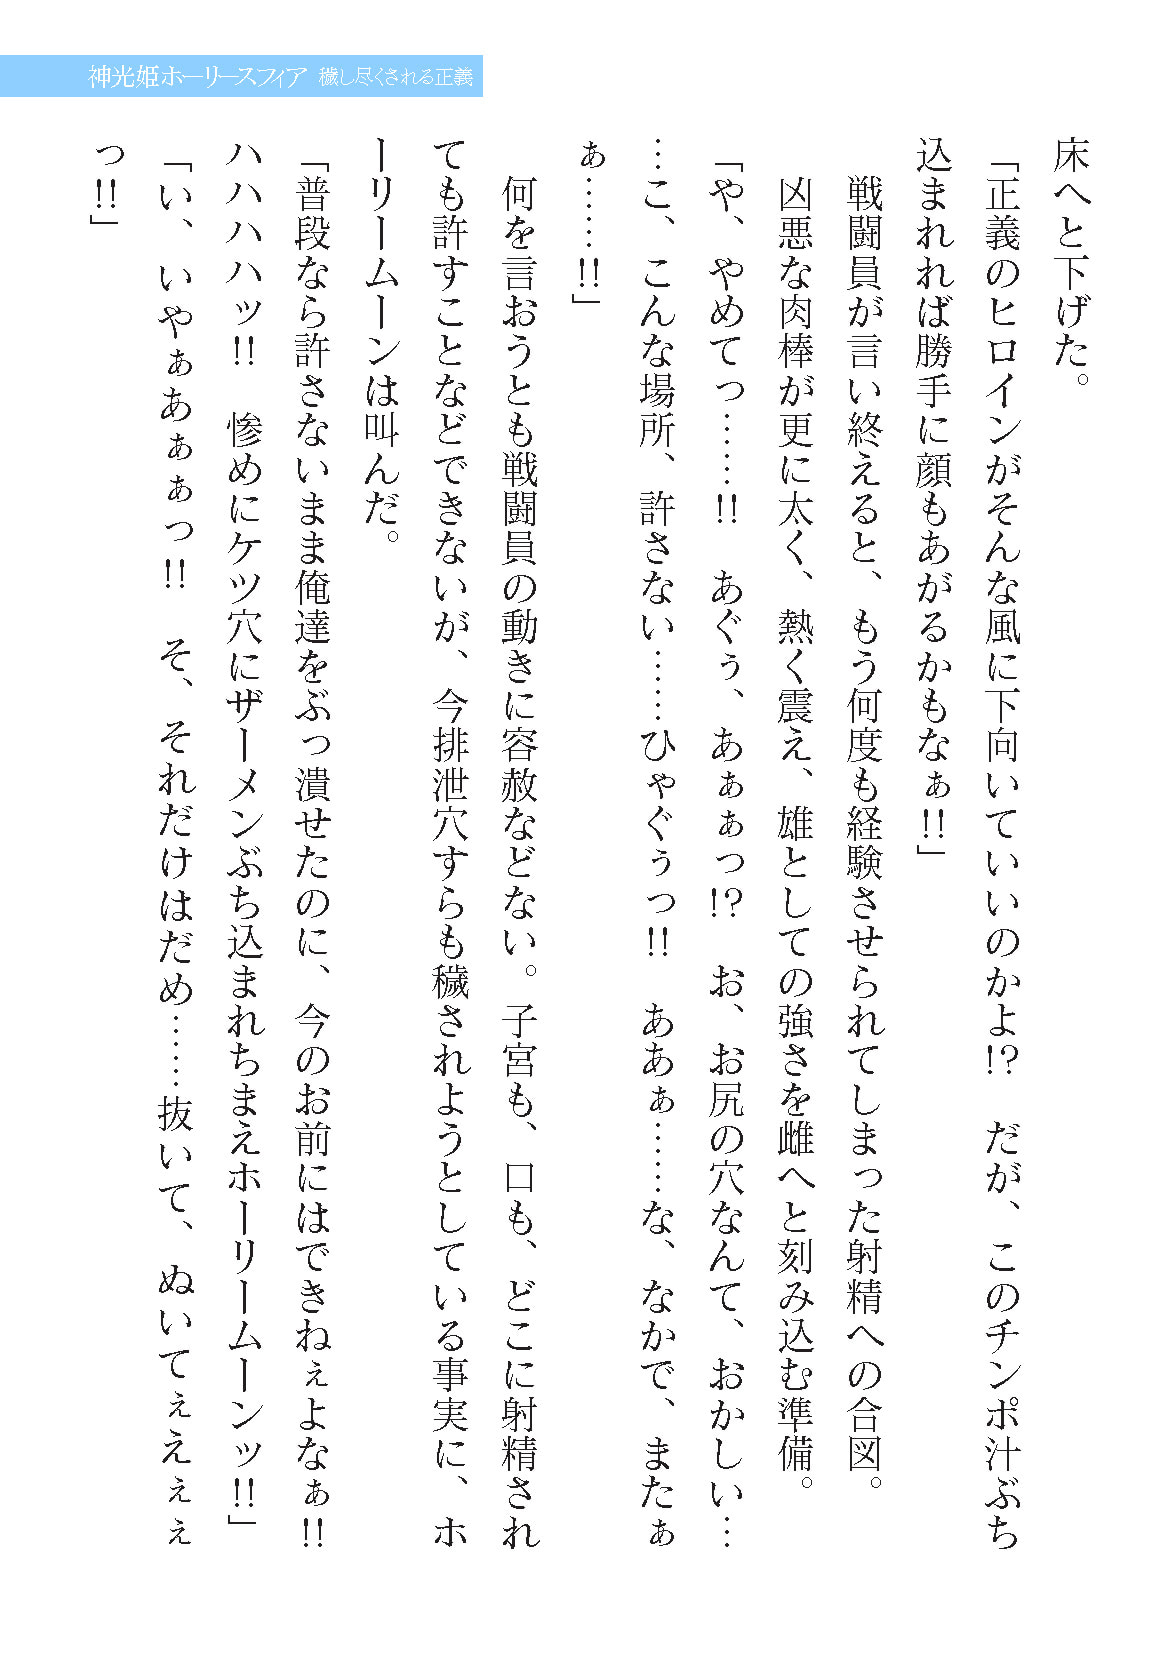 神光姫ホーリースフィア 穢し尽くされる正義
床へと下げた。
「正義のヒロインがそんな風に下向いていいのかよ!?　だが、このチンポ汁ぶち
込まれれば勝手に顔もあがるかもなぁ!!」
　戦闘員が言い終えると、もう何度も経験させられてしまった射精への合図。
　凶悪な肉棒が更に太く、熱く震え、雄としての強さを雌へと刻み込む準備。
「や、やめてっ……!!　あぐぅ、あぁぁっ!?　お、お尻の穴なんて、おかしい…
…こ、こんな場所、許さない……ひゃぐぅっ!!　ああぁ……な、なかで、またぁ
ぁ……!!」
　何を言おうとも戦闘員の動きに容赦などない。子宮も、口も、どこに射精され
ても許すことなどできないが、今排泄穴すらも穢されようとしている事実に、ホ
ーリームーンは叫んだ。
「普段なら許さないまま俺達をぶっ潰せたのに、今のお前にはできねぇよなぁ!!
ハハハハッ!!　惨めにケツ穴にザーメンぶち込まれちまえホーリームーンッ!!」
「い、いやぁあぁぁっ!!　そ、それだけはだめ……抜いて、ぬいてぇえぇぇ
っ!!」